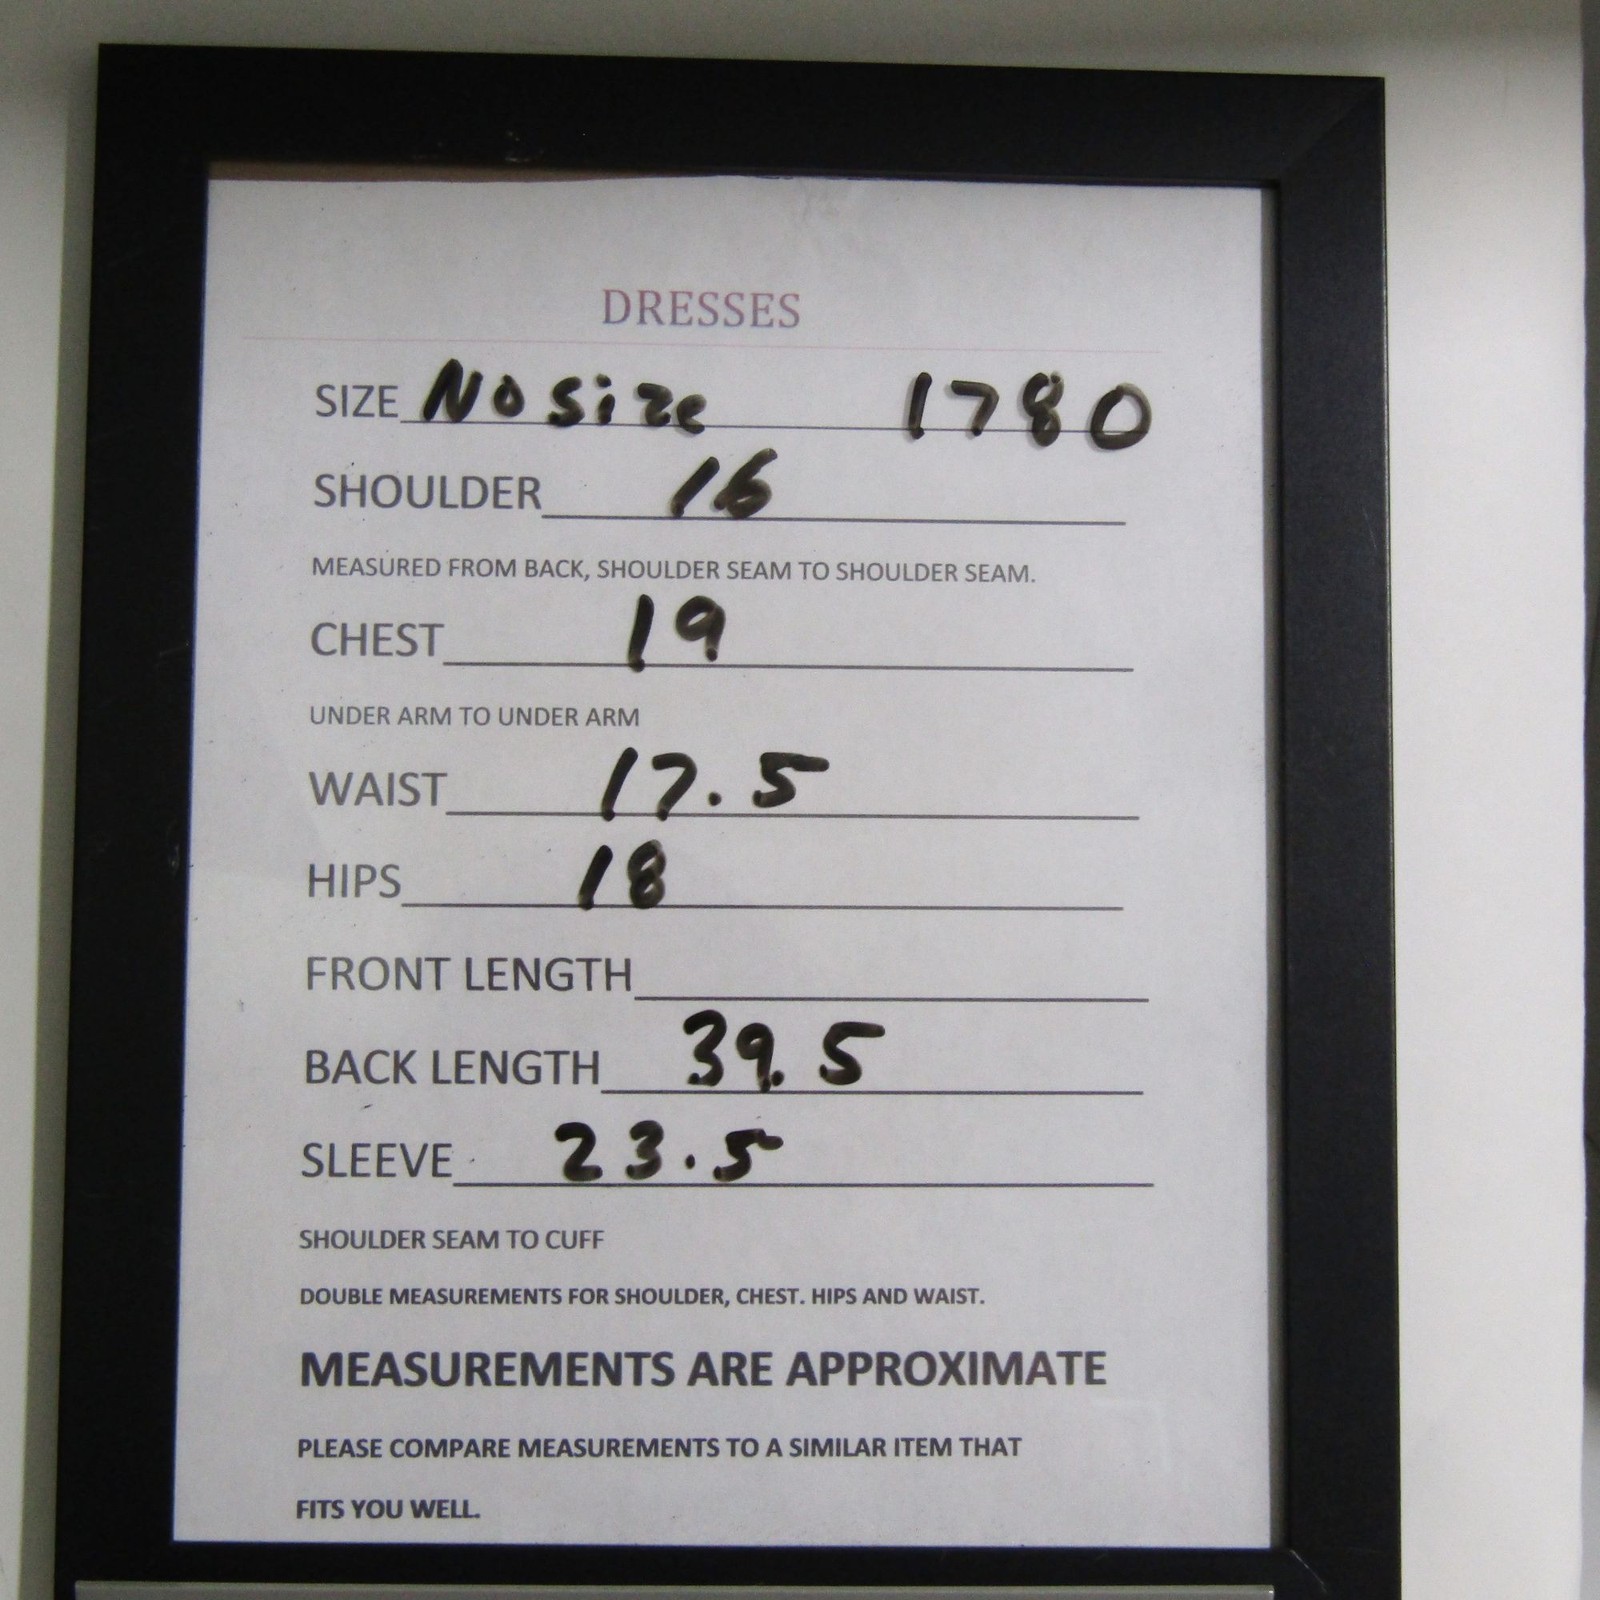 DRESSES
SIZE No size 1780
SHOULDER 16
MEASURED FROM BACK, SHOULDER SEAM TO SHOULDER SEAM.
CHEST 19
UNDER ARM TO UNDER ARM
WAIST 17.5
HIPS 18
FRONT LENGTH
BACK LENGTH 39.5
SLEEVE 23.5
SHOULDER SEAM TO CUFF
DOUBLE MEASUREMENTS FOR SHOULDER, CHEST. HIPS AND WAIST.
MEASUREMENTS ARE APPROXIMATE
PLEASE COMPARE MEASUREMENTS TO A SIMILAR ITEM THAT
FITS YOU WELL.